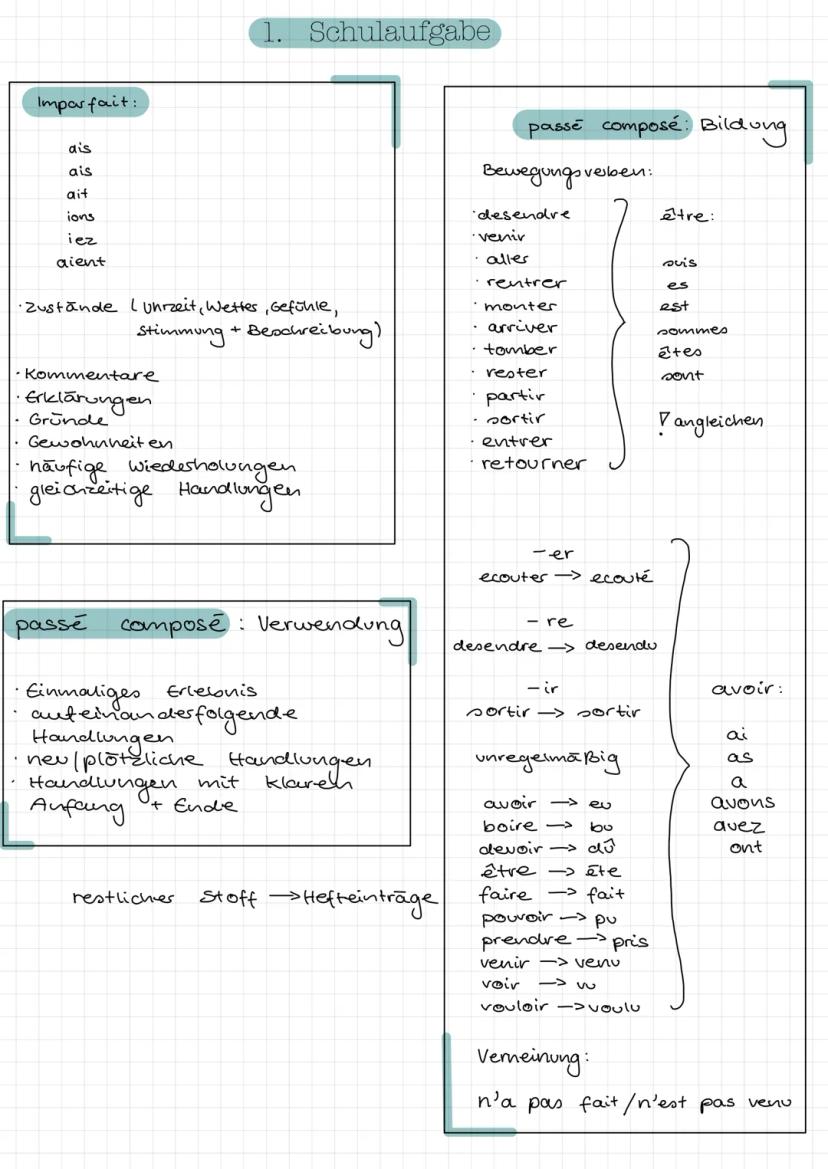 1. Schulaufgabe
Imparfait:
ais
ais
ait
ions
iez
aient
· Zustände (Uhrzeit, Wetter, Gefühle,
Stimmung + Beschreibung)
· Kommentare
· Erklärungen
· Gründe
· Gewohnheiten
· häufige Wiederholungen
· gleichzeitige Handlungen
passé composé : Verwendung
· Einmaliges Erlebnis
· aufeinanderfolgende
Handlungen
· neu/plötzliche Handlungen
· Handlungen mit klarem
Anfang + Ende
restlicher Stoff → Hefteinträge
passé composé: Bildung
Bewegungsverben:
· desendre
· venir
· aller
· rentrer
· monter
· arriver
· tomber
· rester
· partir
· sortir
· entrer
· retourner
être:
suis
es
est
sommes
êtes
sont
! angleichen
-er
ecouter → ecouté
-re
desendre → desendu
-ir
sortir → sortir
unregelmäßig
avoir → eu
boire → bu
devoir → dû
être → éte
faire → fait
pouvoir → pu
prendre → pris
venir → venu
voir → vu
vouloir → voulu
avoir:
ai
as
a
avons
avez
ont
Verneinung:
n'a pas fait / n'est pas venu